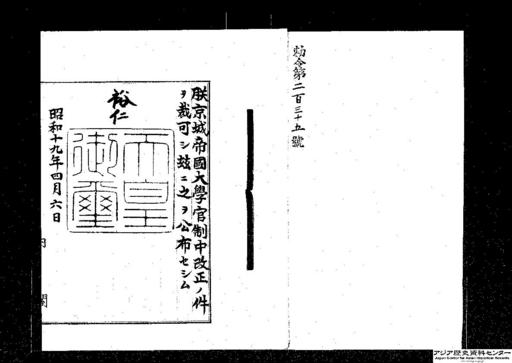 勅令第二百三十五號
朕京城帝國大學官制中改正ノ件
ヲ裁可シ玆ニ之ヲ公布セシム
裕仁
天皇
御璽
昭和十九年四月六日
内 閣
アジア歴史資料センター
Japan Center for Asian Historical Records